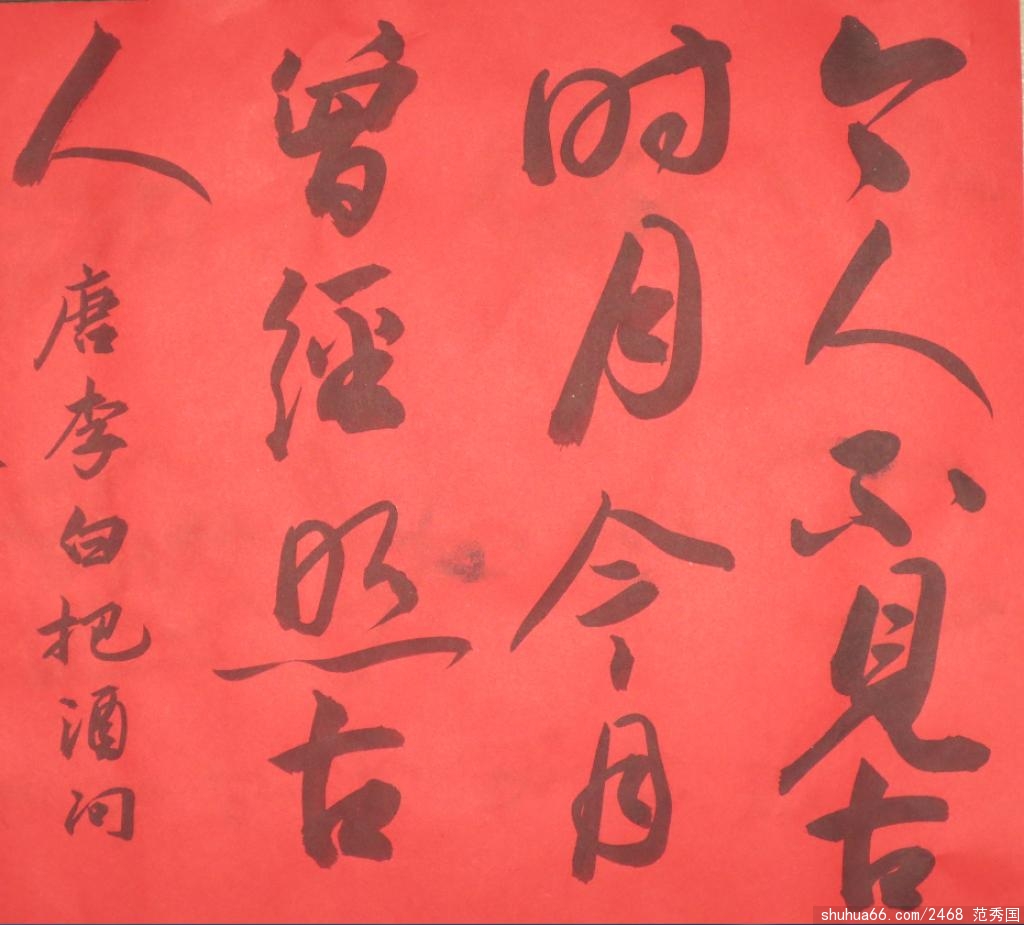 今人不見古
时月今月
曾經照古
人
唐李白把酒问
shuhua66.com/2468 范秀国